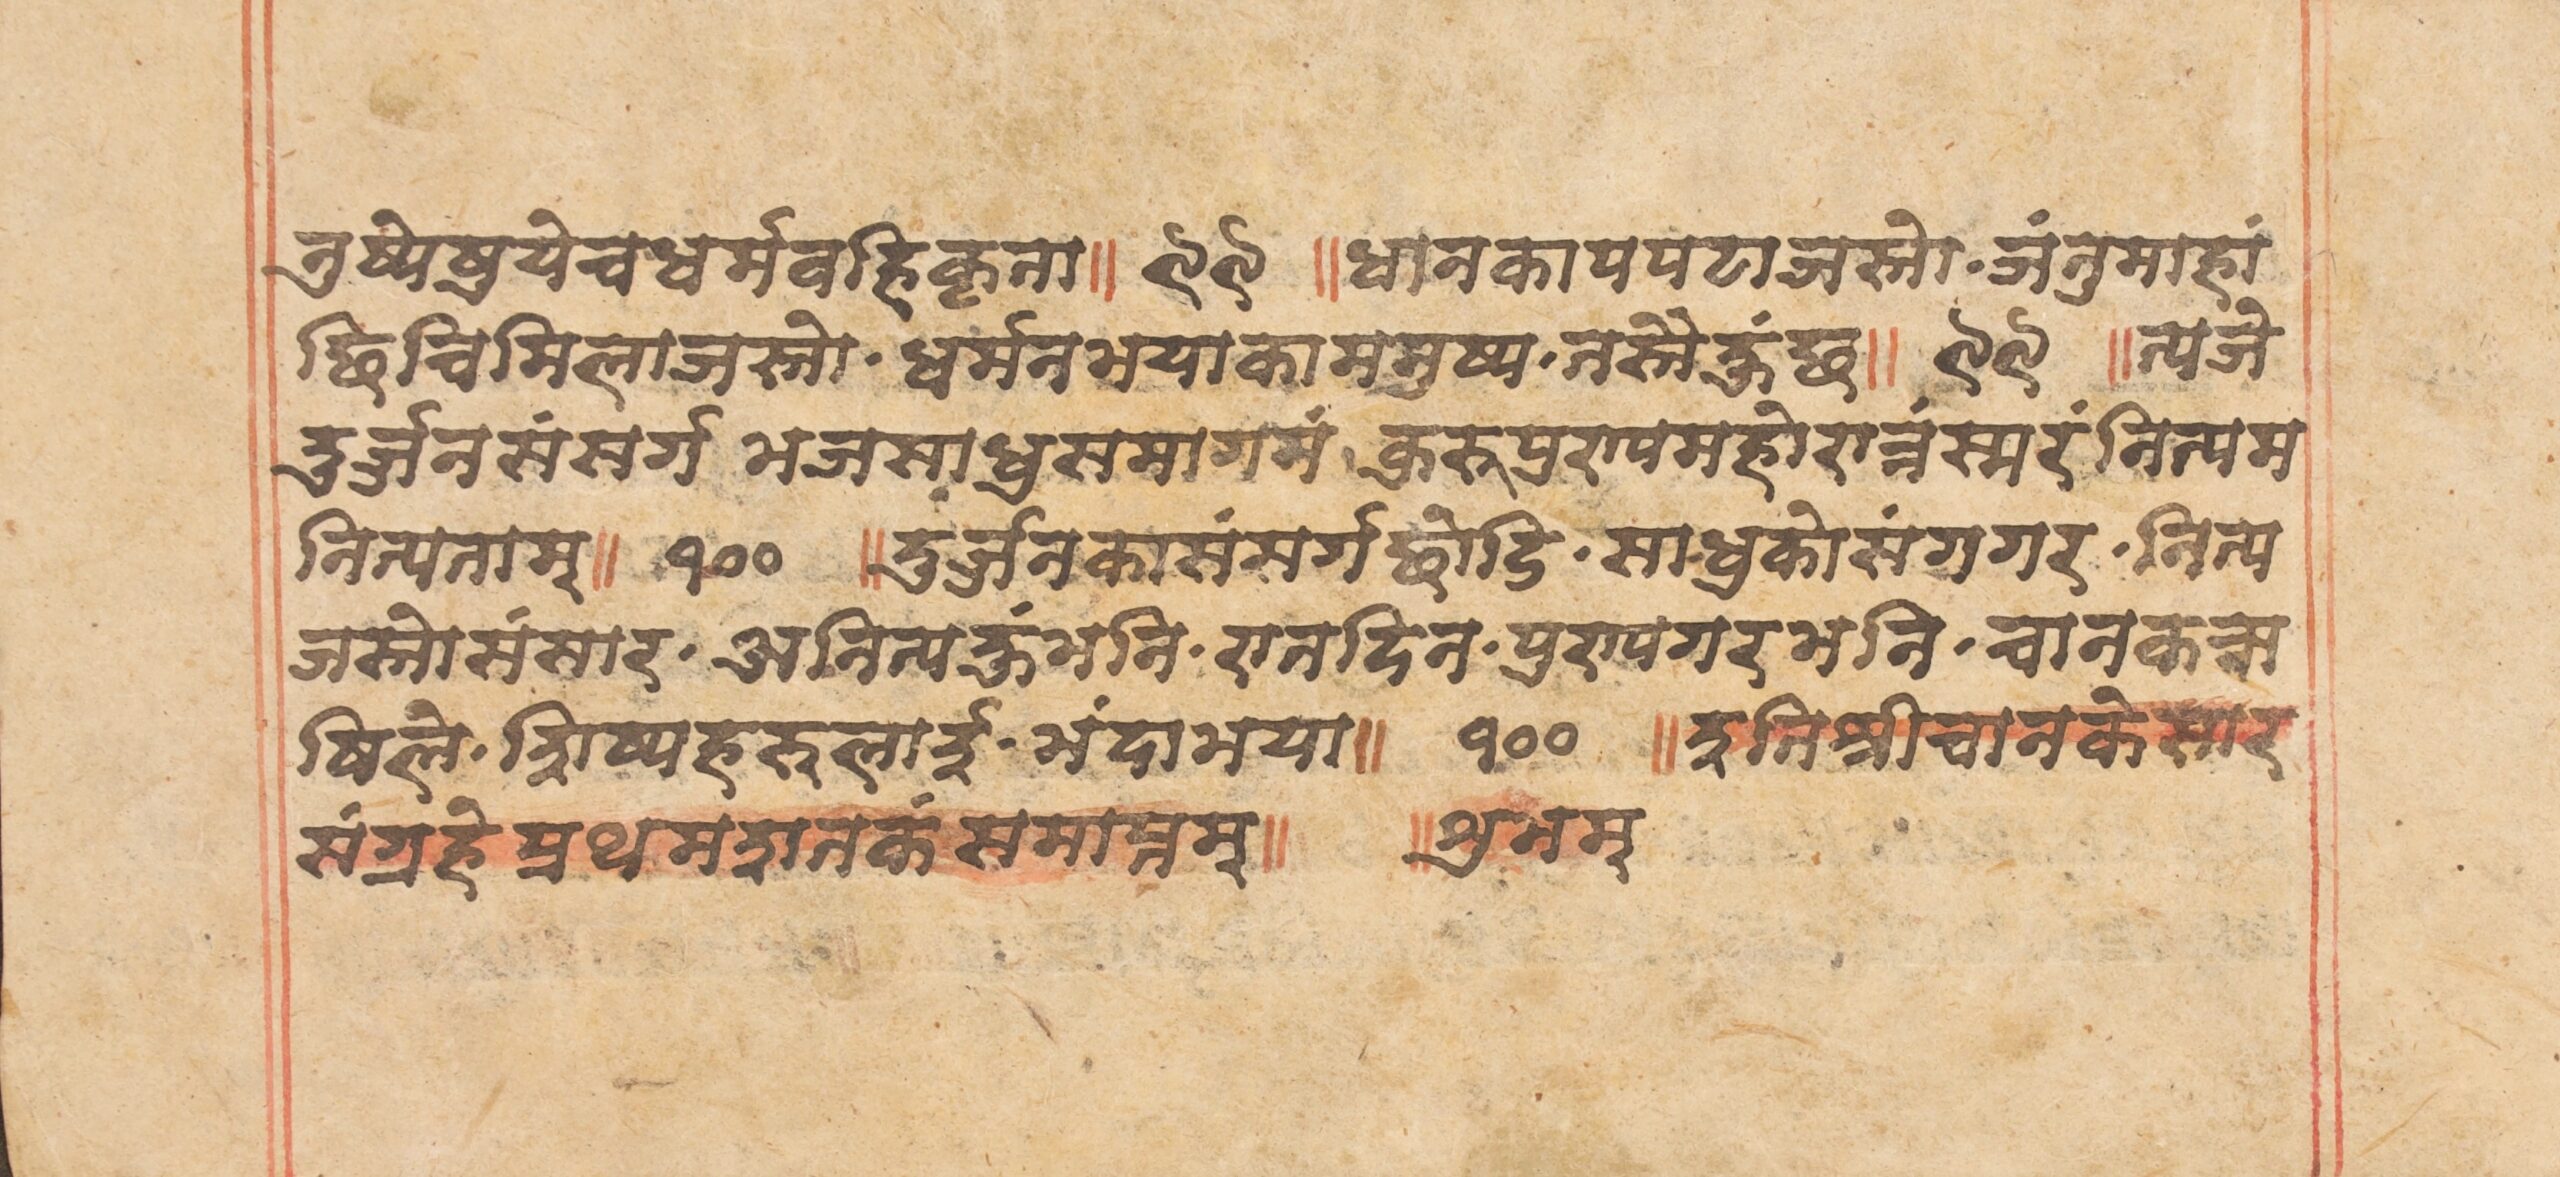 नुष्येषुयेचधर्मवहिकृता॥ ९९ ॥धानकापपटाजस्तो·जंतुमाहां
छिचिमिलाजस्तो·धर्मनभयाकामनुष्य·तस्तैहुंछ॥ ९९ ॥त्यजे
दुर्ज्जनसंसर्ग भजसाधुसमागमं कुरूपुरापमहोरात्रंस्मरंनित्यम
नित्यताम्॥ १०० ॥दुर्ज्जनकासंसर्गछोडि·साधुकोसंगगर·नित्य
जस्तोसंसार·अनित्यहुंभनि·रातदिन·पुरापगरभनि·चानकऋ
षिले·शिष्यहरूलाई·भंदाभया॥ १०० ॥इतिश्रीचानकेसार
संग्रहेप्रथमशतकंसमाप्तम्॥ ॥शुभम्